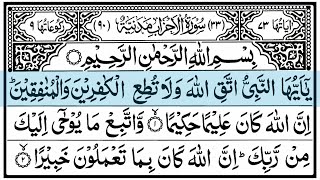 اٰيَاتُهَا ٧٣ (٣٣) سُوْرَةُ الْاَحْزَابِ مَدَنِيَّةٌ (٩٠) رُكُوْعَاتُهَا ٩
بِسْمِ اللّٰهِ الرَّحْمٰنِ الرَّحِيْمِ
يٰۤاَيُّهَا النَّبِيُّ اتَّقِ اللّٰهَ وَلَا تُطِعِ الْكٰفِرِيْنَ وَالْمُنٰفِقِيْنَ ؕ
اِنَّ اللّٰهَ كَانَ عَلِيْمًا حَكِيْمًا ۙ﴿۱﴾ وَّاتَّبِعْ مَا يُوْحٰۤى اِلَيْكَ
مِنْ رَّبِّكَ ؕ اِنَّ اللّٰهَ كَانَ بِمَا تَعْمَلُوْنَ خَبِيْرًا ۙ﴿۲﴾